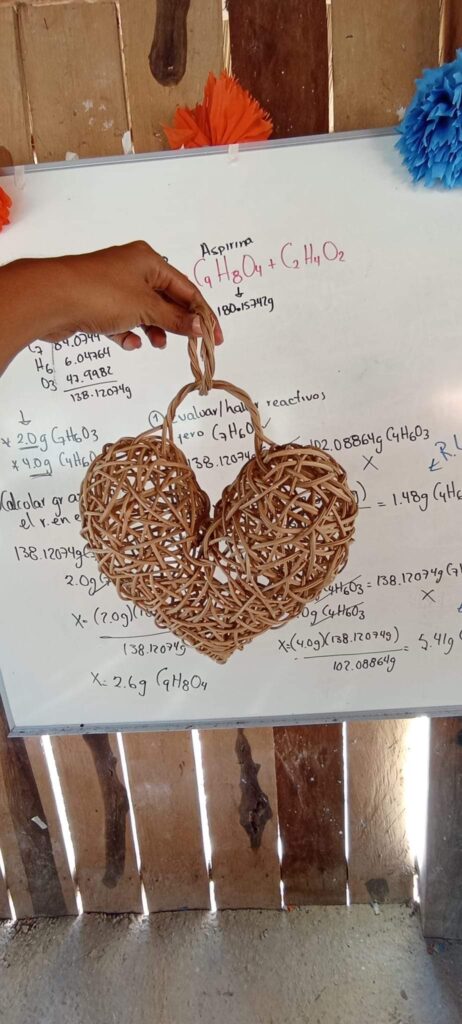 Aspirina
C9H8O4 + C2H4O2
↓
180.15742g
H6 6.04764
O3 47.9982
138.12074g
↓
* 2.0g C7H6O3
* 4.0g C4H6O
① Evaluar/hallar reactivos
pero C7H6O
138.12074g
102.08864g C4H6O3
X
= 1.48g C4H6
Calcular gr
el r. en e
138.12074g
2.0g
C4H6O3 = 138.12074g C7H
0g C4H6O3
X
X= (2.0g)(
138.12074g
X=(4.0g)(138.12074g)
102.08864g
= 5.41g
X= 2.6g C9H8O4